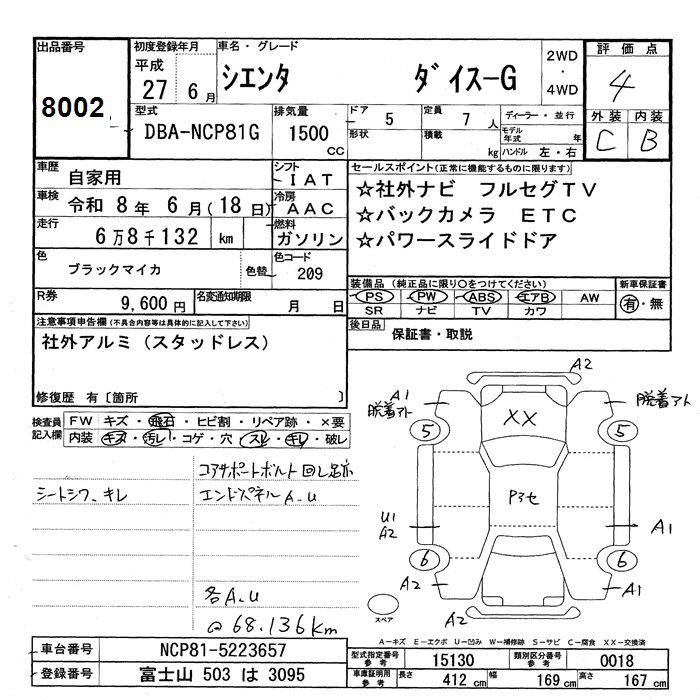 出品番号 初度登録年月 車名・グレード 2WD・4WD 評価点
8002 平成27 6月 シエンタ ダイスーG 4
型式 DBA-NCP81G 排気量 1500CC ドア 5 定員 7人 ディーラー・並行 外装 内装
形状 積載 kg モデル年式 年 ハンドル 左・右 C B
車歴 自家用 シフト IAT セールスポイント(正常に機能するものに限ります)
車検 令和 8年 6月(18日) 冷房 AAC ☆社外ナビ フルセグTV
走行 6万8千132 km 燃料 ガソリン ☆バックカメラ ETC
☆パワースライドドア
色 ブラックマイカ 色替 色コード 209
装備品(純正品に限り○をつけてください) 新車保証書
PS PW ABS エアB AW 有・無
SR ナビ TV カワ
R券 9,600円 名変通知期限 月 日
後日品 保証書・取説
注意事項申告欄(不具合内容等は具体的に記入して下さい)
社外アルミ(スタッドレス)
修復歴 有〔箇所 〕
検査員記入欄 FW キズ・飛石・ヒビ割・リペア跡・×要
内装 キズ・汚レ・コゲ・穴・スレ・キレ・破レ
コアサポートボルト回し跡
シートシワ、キレ エンドパネルA_U
各A_U
@68.136km
A2
A1 脱着アト XX 脱着アト
5 5
P3セ
U1
A2 A1
6 6
A2 A1
スペア A2
A-キズ E-エクボ U-凹み W-補修跡 S-サビ C-腐食 XX-交換済
車台番号 NCP81-5223657
登録番号 富士山 503 は 3095
型式指定番号 参考 15130 類別区分番号 参考 0018
車庫証明用 参考 長さ 412 cm 幅 169 cm 高さ 167 cm